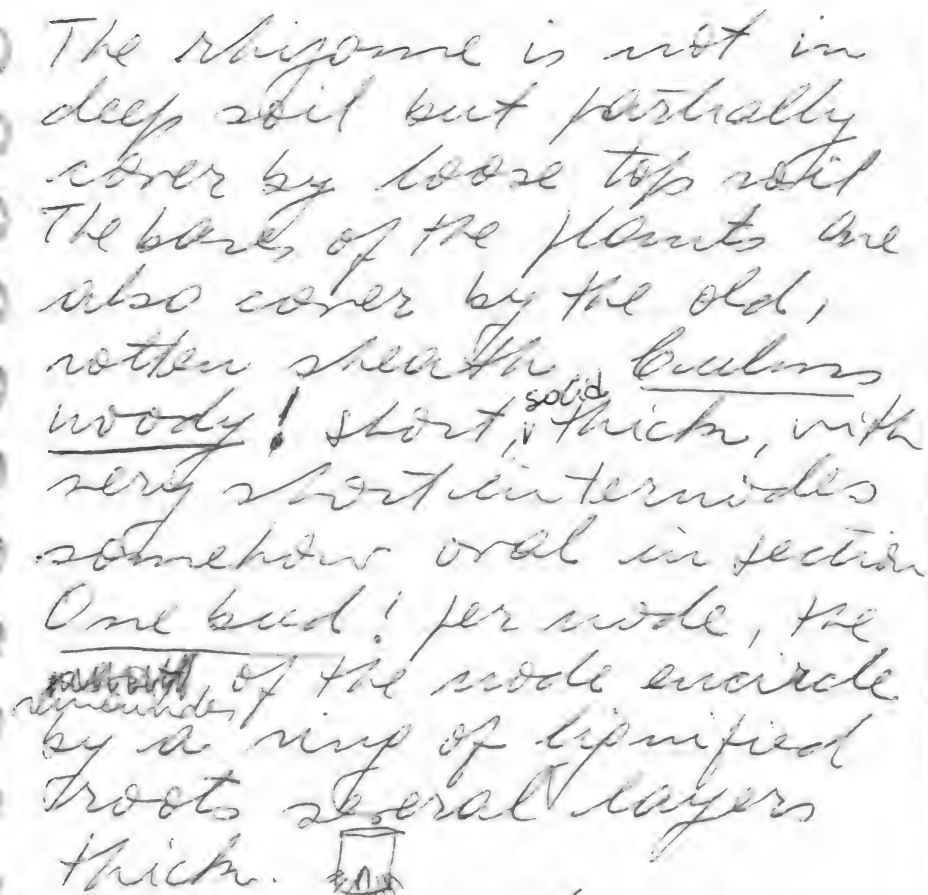 The rhizome is not in
deep soil but partially
cover by loose top soil
The bases of the plants are
also cover by the old,
rotten sheath. Culms
woody! short, solid thick, with
very short internodes
somehow oval in section
One bud! per node, the
remainder of the node encircle
by a ring of lignified
roots several layers
thick.